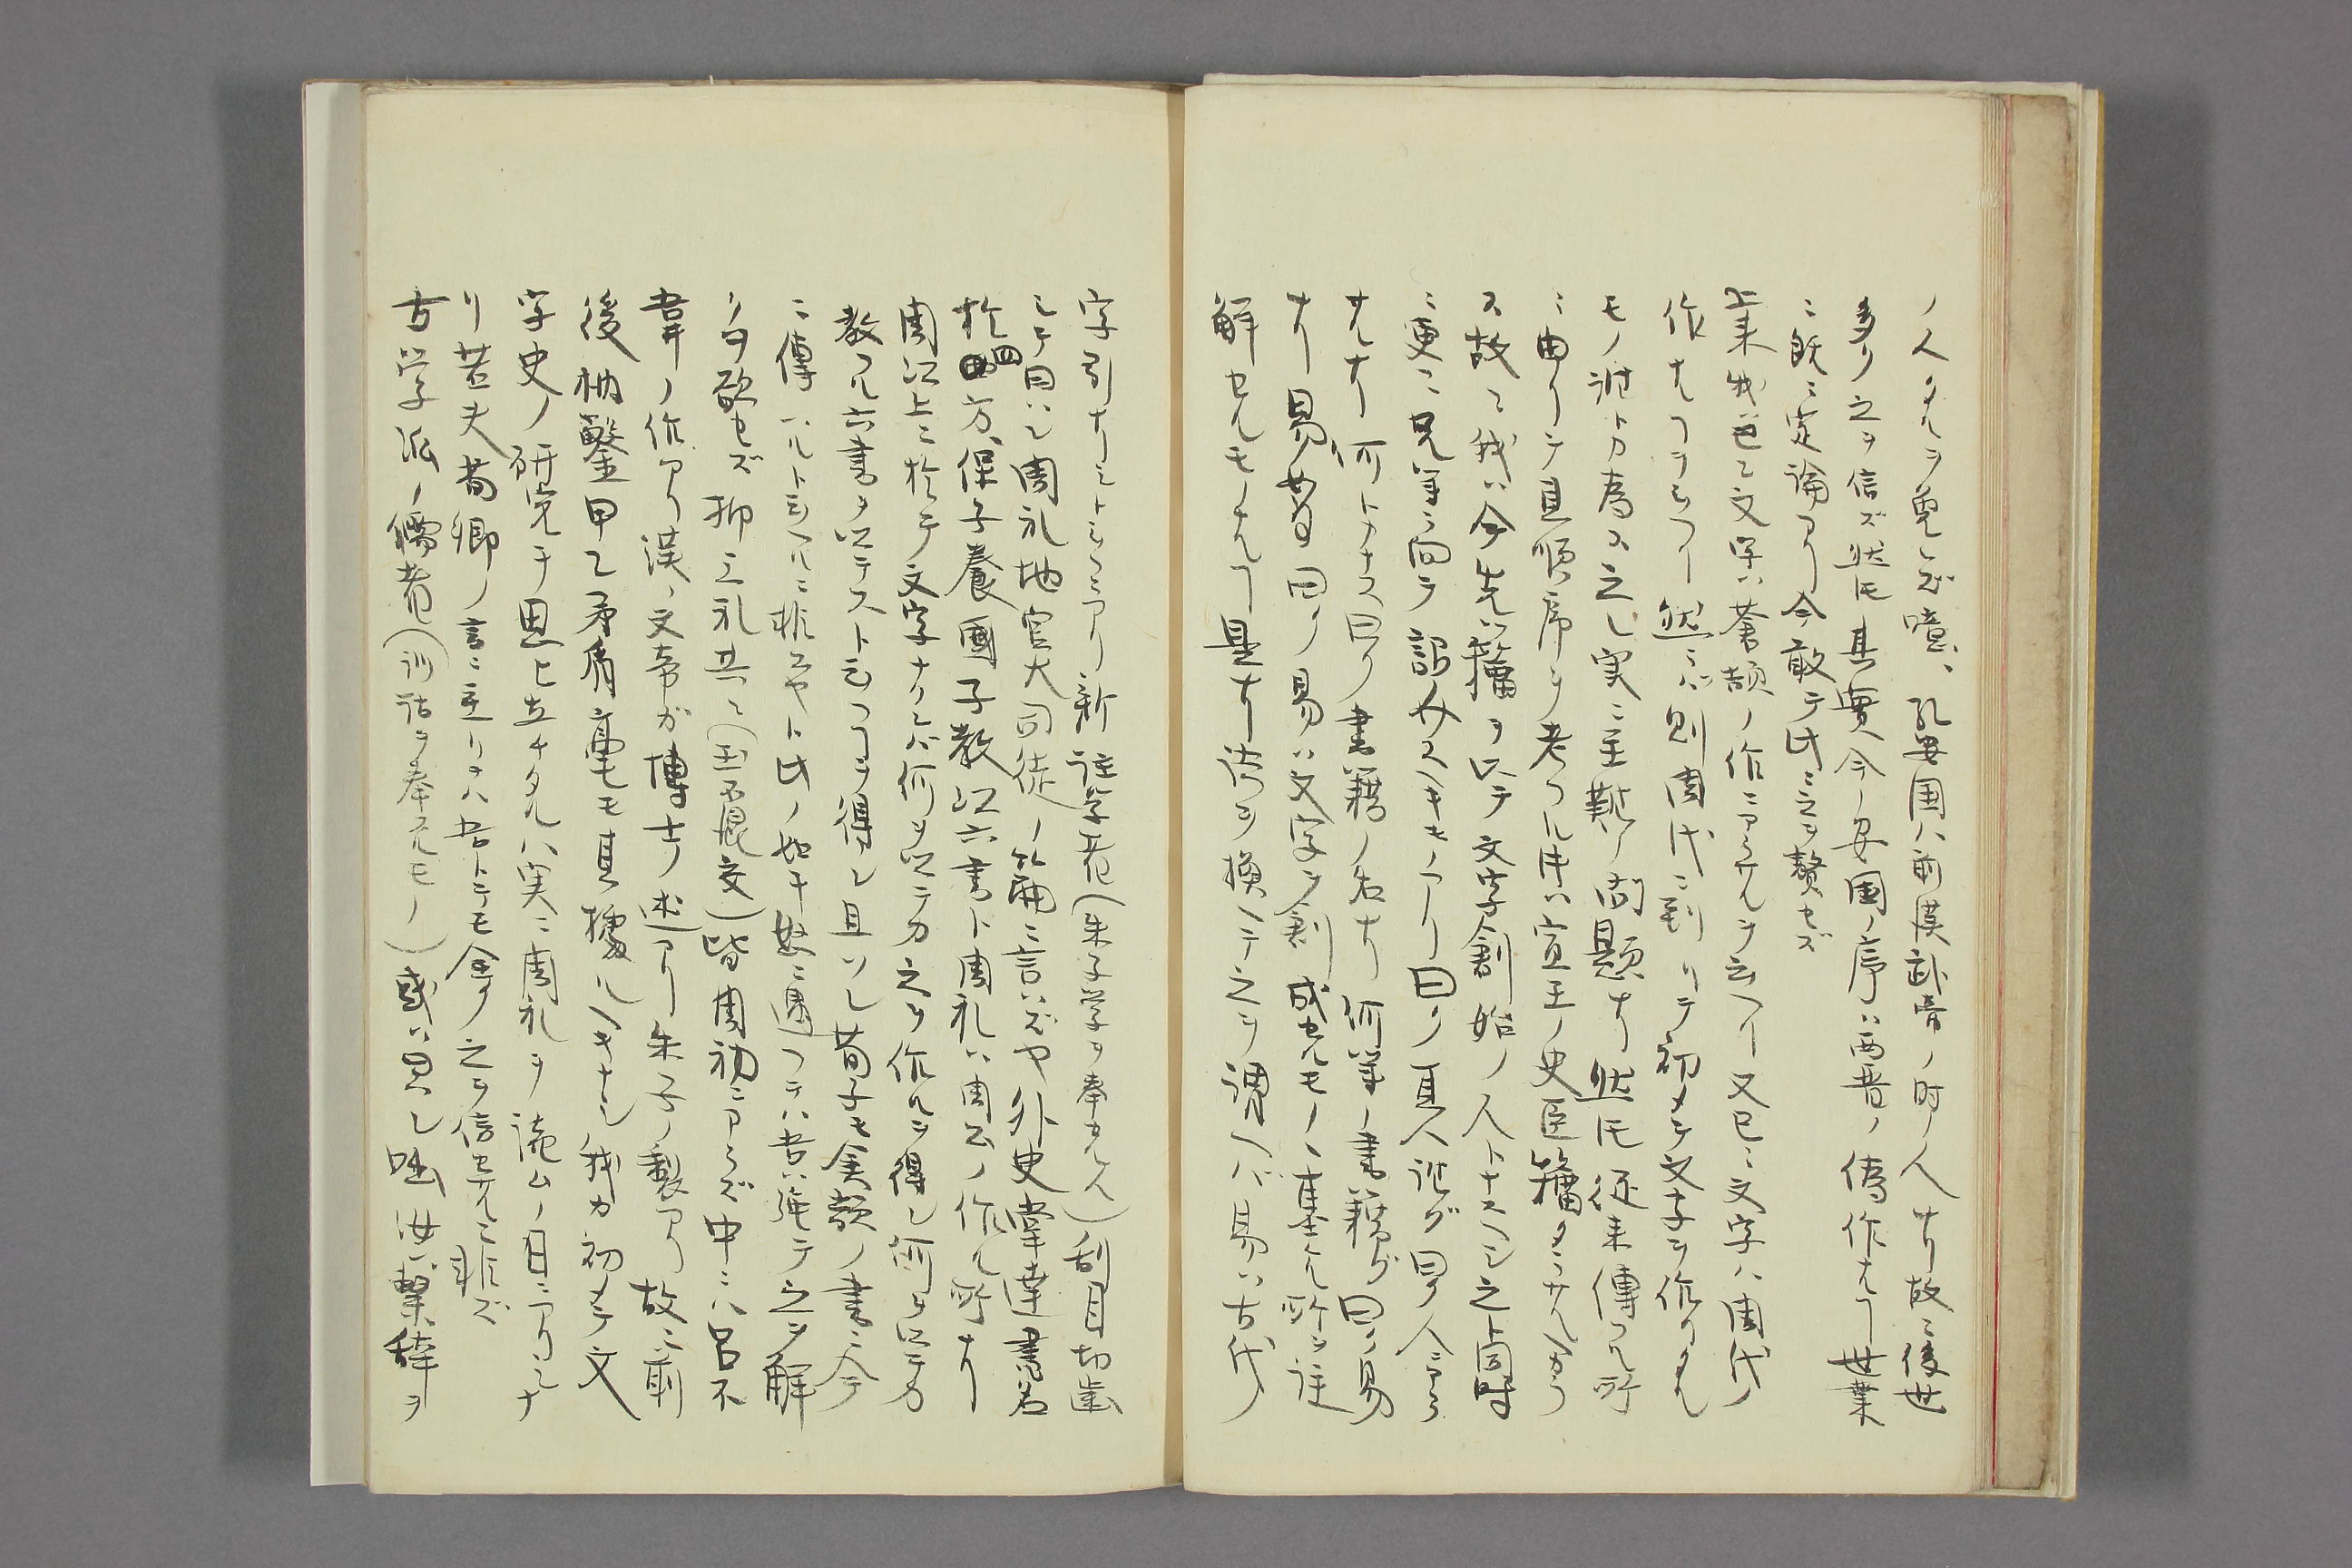 ノ人タルヲ免レズ噫、孔安国ハ前漢武帝ノ時ノ人ナリ故ニ後世
多ク之ヲ信ズ然𪜈其實今ノ安國ノ序ハ両晋ノ偽作ナルヿ世業
ニ既ニ定論アリ今敢テ此ニ之ヲ贅セズ
上来我已ニ文字ハ蒼頡ノ作ニアラサルヲ云ヘリ又已ニ文字ハ周代ノ
作ナルヿヲ云ヘリ然ラバ則周代ニ到リテ初メテ文字ヲ作リタル
モノ誰トカ為ス之レ実ニ至難ノ問題ナリ然𪜈従来傳フル所
ニ由リテ且順序ヲ考フル时ハ宣王ノ史臣籀タラサルヘカラ
ス故ニ我ハ今先ツ籀ヲ以テ文字創始ノ人トナスヘシ之ト同時
ニ更ニ兄等ニ向テ語ルヘキモノアリ曰ク真人誰グ曰ク人ニアラ
サルナリ何トナス曰ク書籍ノ名ナリ何等ノ書籍グ曰ク易
ナリ易 曰ク易ハ文字ヲ創成セルモノヽ基ク所ヲ註
解セルモノナルヿ是ナリ語ヲ換ヘテ之ヲ謂ヘバ易ハ古代ノ
字引ナリシト云フニアリ新註学者（朱子学ヲ奉スル人）刮目切歯
シテ曰ハン周礼地官大司徒ノ篇ニ言ハズヤ外史掌達書名
於四方、保子養國子教以六書ト周礼ハ周公ノ作ル所ナリ
周以上ニ於テ文字ナクンバ何ヲ以テカ之ヲ作ルヲ得ン何ヲ以テカ
教フルニ六書ヲ以テスト云フヿヲ得ン且ツ荀子モ倉頡ノ書ニ今
ニ傳ハルト云ヘルニ非スヤト此ノ如キ怒ニ遇フテハ吾ハ強テ之ヲ解
クヲ欲セズ抑三礼共ニ（玉石混交）皆周初ニアラズ中ニハ呂不
韋ノ作アリ漢ノ文帝ガ博士ノ述アリ朱子ノ製アリ故ニ前
後枘鑿甲乙矛盾毫モ其據ルヘキナシ我カ初メテ文
字史ノ研究ヲ思ヒ立チタルハ実ニ周礼ヲ読ムノ日ニアリシナ
リ若夫荀卿ノ言ニ至リテハ吾トテモ今ノ之ヲ信セサルニ非ズ
古学派ノ儒者（訓詁ヲ奉スルモノ）或ハ曰ハン咄汝ハ繋辞ヲ